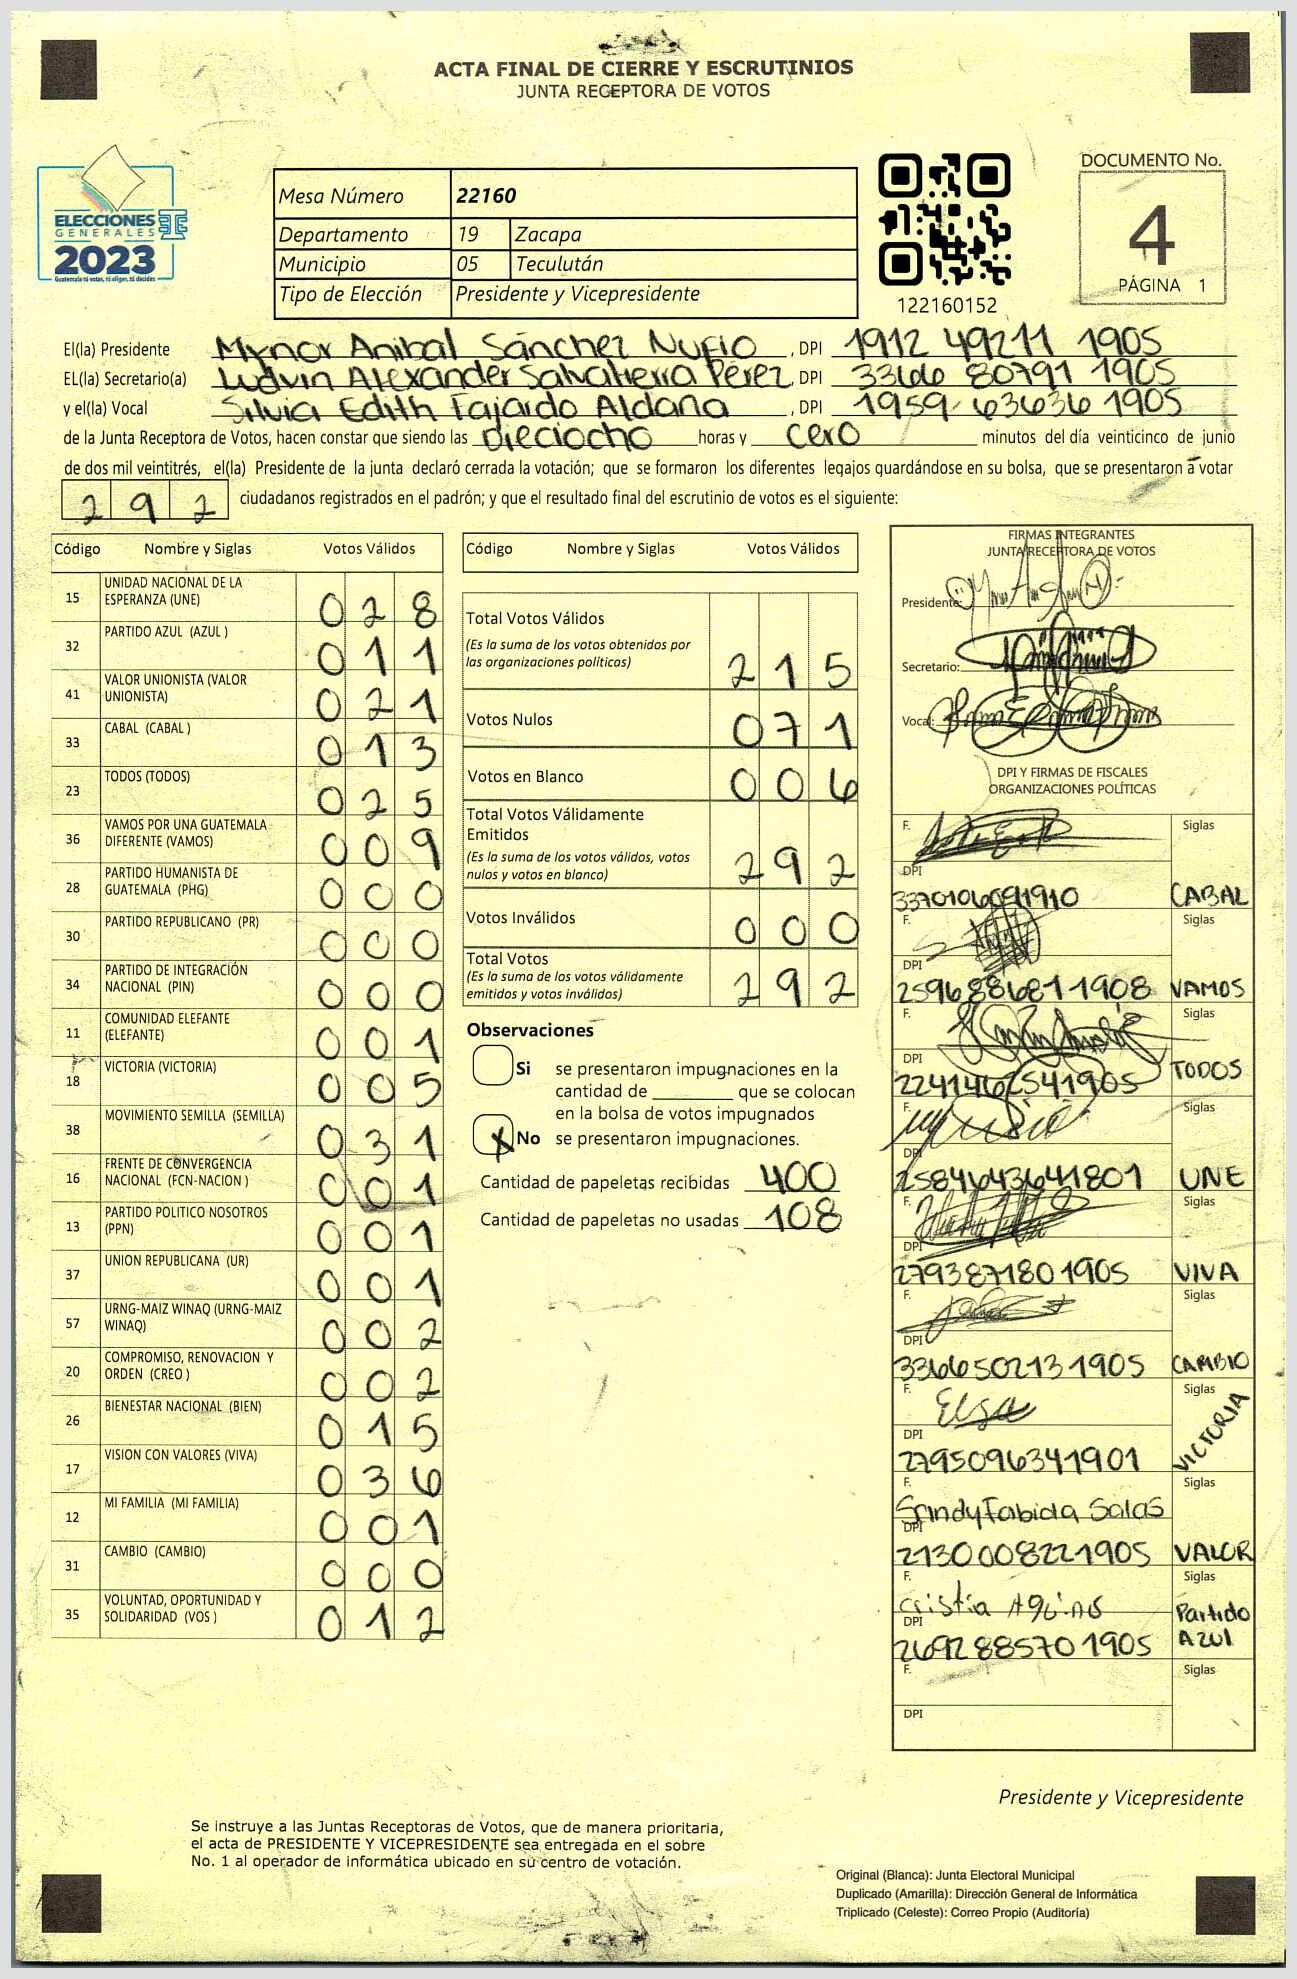 ACTA FINAL DE CIERRE Y ESCRUTINIOS
JUNTA RECEPTORA DE VOTOS
ELECCIONES
GENERALES
2023
Guatemala tú votas, tú eliges, tú decides
Mesa Número 22160
Departamento 19 Zacapa
Municipio 05 Teculután
Tipo de Elección Presidente y Vicepresidente
122160152
DOCUMENTO No.
4
PÁGINA 1
El(la) Presidente Mynor Anibal Sánchez Nufio, DPI 1912 49211 1905
EL(la) Secretario(a) Ludvin Alexander Salvatierra Pérez, DPI 3366 80791 1905
y el(la) Vocal Silvia Edith Fajardo Aldana, DPI 1959 63636 1905
de la Junta Receptora de Votos, hacen constar que siendo las dieciocho horas y cero minutos del día veinticinco de junio
de dos mil veintitrés, el(la) Presidente de la junta declaró cerrada la votación; que se formaron los diferentes legajos guardándose en su bolsa, que se presentaron a votar
292 ciudadanos registrados en el padrón; y que el resultado final del escrutinio de votos es el siguiente:
Código Nombre y Siglas Votos Válidos
15 UNIDAD NACIONAL DE LA ESPERANZA (UNE) 028
32 PARTIDO AZUL (AZUL ) 011
41 VALOR UNIONISTA (VALOR UNIONISTA) 021
33 CABAL (CABAL ) 013
23 TODOS (TODOS) 025
36 VAMOS POR UNA GUATEMALA DIFERENTE (VAMOS) 009
28 PARTIDO HUMANISTA DE GUATEMALA (PHG) 000
30 PARTIDO REPUBLICANO (PR) 000
34 PARTIDO DE INTEGRACIÓN NACIONAL (PIN) 000
11 COMUNIDAD ELEFANTE (ELEFANTE) 001
18 VICTORIA (VICTORIA) 005
38 MOVIMIENTO SEMILLA (SEMILLA) 031
16 FRENTE DE CONVERGENCIA NACIONAL (FCN-NACION ) 001
13 PARTIDO POLITICO NOSOTROS (PPN) 001
37 UNION REPUBLICANA (UR) 001
57 URNG-MAIZ WINAQ (URNG-MAIZ WINAQ) 002
20 COMPROMISO, RENOVACION Y ORDEN (CREO ) 002
26 BIENESTAR NACIONAL (BIEN) 015
17 VISION CON VALORES (VIVA) 036
12 MI FAMILIA (MI FAMILIA) 001
31 CAMBIO (CAMBIO) 000
35 VOLUNTAD, OPORTUNIDAD Y SOLIDARIDAD (VOS ) 012
Código Nombre y Siglas Votos Válidos
Total Votos Válidos
(Es la suma de los votos obtenidos por
las organizaciones políticas) 215
Votos Nulos 071
Votos en Blanco 006
Total Votos Válidamente
Emitidos
(Es la suma de los votos válidos, votos
nulos y votos en blanco) 292
Votos Inválidos 000
Total Votos
(Es la suma de los votos válidamente
emitidos y votos inválidos) 292
Observaciones
Si se presentaron impugnaciones en la
cantidad de ________ que se colocan
en la bolsa de votos impugnados
X No se presentaron impugnaciones.
Cantidad de papeletas recibidas 400
Cantidad de papeletas no usadas 108
FIRMAS INTEGRANTES
JUNTA RECEPTORA DE VOTOS
Presidente:
Secretario:
Vocal:
DPI Y FIRMAS DE FISCALES
ORGANIZACIONES POLÍTICAS
F. Siglas
DPI
3370106091910 CABAL
F. Siglas
DPI
2596886811908 VAMOS
F. Siglas
DPI
2241462541905 TODOS
F. Siglas
DPI
2584643641801 UNE
F. Siglas
DPI
2793871801905 VIVA
F. Siglas
DPI
3366502131905 CAMBIO
F. Elsa Siglas
DPI
2795096341901 VICTORIA
F. Siglas
Sandy Fabiola Salas
DPI
2130008221905 VALOR
F. Siglas
DPI
2692885701905 Partido AZUL
F. Siglas
DPI
Presidente y Vicepresidente
Se instruye a las Juntas Receptoras de Votos, que de manera prioritaria,
el acta de PRESIDENTE Y VICEPRESIDENTE sea entregada en el sobre
No. 1 al operador de informática ubicado en su centro de votación.
Original (Blanca): Junta Electoral Municipal
Duplicado (Amarilla): Dirección General de Informática
Triplicado (Celeste): Correo Propio (Auditoría)